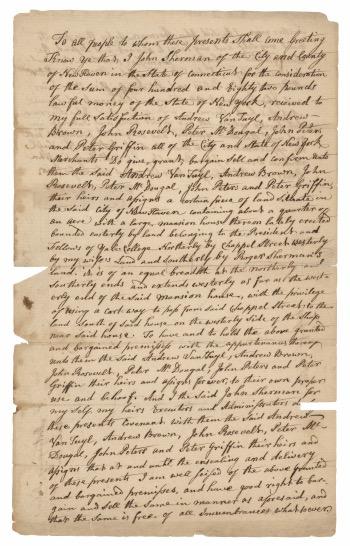 To all people to whom these presents Shall come Greeting
Know ye that, I John Sherman of the City and County
of New Haven in the State of Connecticut for the consideration
of the Sum of four hundred and Eighty two pounds
lawful money of the State of New York, received to
my full Satisfaction of Andrew VanTuyl, Andrew
Brown, John Rosevelt, Peter Mc Dougal, John Peters
and Peter Griffin all of the City and State of New York
Merchants Do give, grant, bargain Sell and confirm unto
them the Said Andrew VanTuyl, Andrew Brown, John
Rosevelt, Peter Mc Dugal, John Peters and Peter Griffin,
their heirs and assigns a Certain piece of land Situate in
the Said City of New Haven containing about a quarter of
an acre with a large mansion house thereon lately erected
bounded easterly by land belonging to the President and
Fellows of Yale College Northerly by Chappel Street westerly
by my wifes Land and Southerly by Roger Sherman's
land: it is of an equal breadth at the northerly and
Southerly ends and extends westerly as far as the west
erly end of the Said mansion house, with the privilege
of using a cart way to pass from Said Chappel Street to the
land South of Said house on the westerly Side of the Shop
near Said house. To have and to hold the above granted
and bargained premisses with the appurtenances thereof
unto them the Said Andrew VanTuyl, Andrew Brown,
John Rosevelt, Peter Mc Dugal, John Peters and Peter
Griffin their heirs and assigns forever, to their own proper
use and behoof. And I the Said John Sherman for
my Self, my heirs Executors and Administrators
these presents Covenant with them the Said Andrew
VanTuyl, Andrew Brown, John Rosevelt, Peter Mc
Dougal, John Peters and Peter Griffin their heirs and
assigns that at and until the ensealing and delivery
of these presents I am well Seised of the above granted
and bargained premisses, and have good right to bar-
gain and Sell the Same in manner as aforesaid, and
that the Same is free of all Incumbrances whatsoever